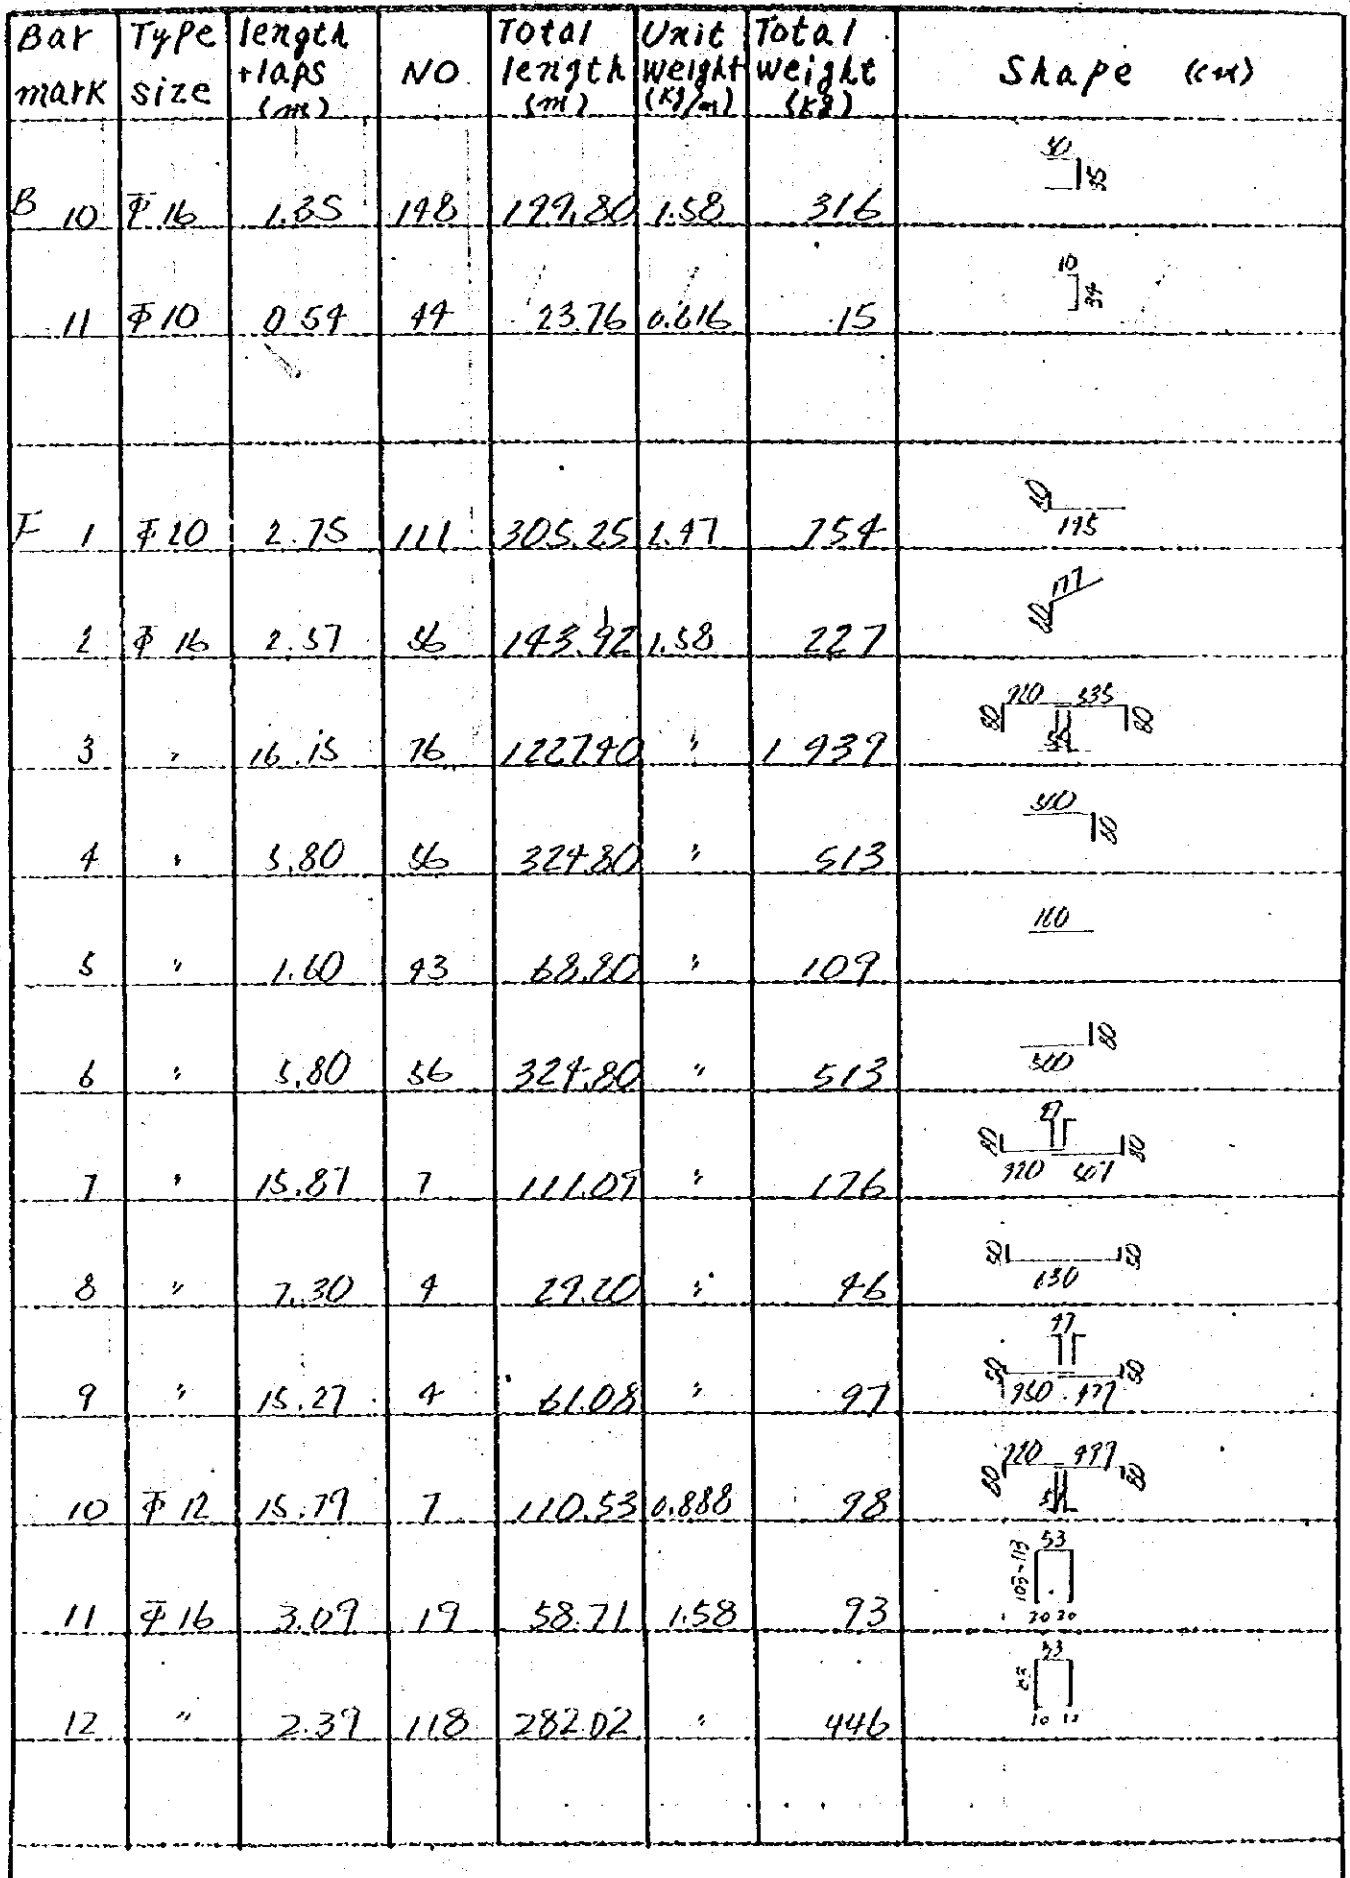 Bar mark Type size length +laps (m) NO Total length (m) Unit weight (Kg/m) Total weight (Kg) Shape (cm)
B 10 Φ16 1.35 148 199.80 1.58 316 50 35
11 Φ10 0.54 44 23.76 0.616 15 10 34
F 1 Φ20 2.75 111 305.25 2.47 754 80 195
2 Φ16 2.57 56 143.92 1.58 227 80 177
3 " 16.15 76 1227.40 " 1939 80 920 535 80
4 " 5.80 56 324.80 " 513 500 80
5 " 1.60 43 68.80 " 109 160
6 " 5.80 56 324.80 " 513 500 80
7 " 15.87 7 111.09 " 176 47 80 920 507 80
8 " 7.30 4 29.20 " 46 50 630 50
9 " 15.27 4 61.08 " 97 47 50 950 477 50
10 Φ12 15.79 7 110.53 0.888 98 80 920 499 80
11 Φ16 3.09 19 58.71 1.58 93 53 103~113 20 20
12 " 2.39 118 282.02 " 446 53 83 10